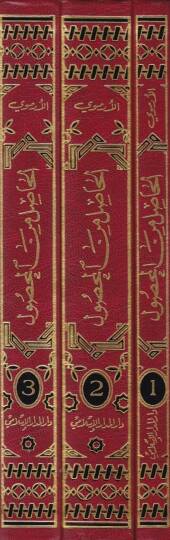 الأرموي
الحاصل من المحصول
1
دار المدار الإسلامي
الأرموي
الحاصل من المحصول
2
دار المدار الإسلامي
الأرموي
الحاصل من المحصول
3
دار المدار الإسلامي